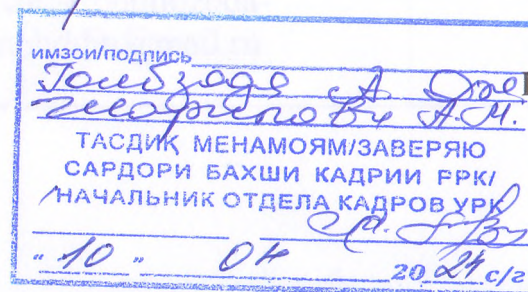 имзои/подпись
Голибзода А.
Шарипов А.М.
ТАСДИҚ МЕНАМОЯМ/ЗАВЕРЯЮ
САРДОРИ БАХШИ КАДРИИ РРК/
НАЧАЛЬНИК ОТДЕЛА КАДРОВ УРК
"10" 04 2024 с/г